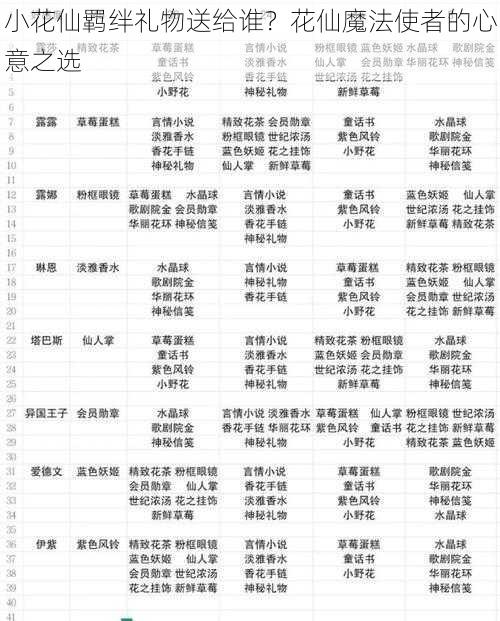 小花仙羁绊礼物送给谁？花仙魔法使者的心
意之选
露莎 精致花茶 草莓蛋糕 言情小说 粉框眼镜 蓝色妖姬 水晶球 歌剧院金
童话书 淡雅香水 仙人掌 会员勋章 华丽花环 神秘信笺
紫色风铃 香花手链 世纪浓汤 花之挂饰
5 小野花 神秘礼物 新鲜草莓
6
7 露露 草莓蛋糕 言情小说 精致花茶 会员勋章 童话书 水晶球
8 淡雅香水 粉框眼镜 世纪浓汤 紫色风铃 歌剧院金
9 香花手链 蓝色妖姬 花之挂饰 小野花 华丽花环
10 神秘礼物 仙人掌 新鲜草莓 神秘信笺
11
12 露娜 粉框眼镜 草莓蛋糕 水晶球 言情小说 童话书 蓝色妖姬 仙人掌
13 歌剧院金 会员勋章 淡雅香水 紫色风铃 世纪浓汤 花之挂饰
14 华丽花环 神秘信笺 香花手链 小野花 新鲜草莓 精致花茶
15 神秘礼物
16
17 琳恩 淡雅香水 水晶球 言情小说 草莓蛋糕 精致花茶 粉框眼镜
18 歌剧院金 神秘礼物 童话书 蓝色妖姬 仙人掌
19 华丽花环 香花手链 紫色风铃 会员勋章 世纪浓汤
20 神秘信笺 小野花 花之挂饰 新鲜草莓
21
22 塔巴斯 仙人掌 草莓蛋糕 言情小说 精致花茶 粉框眼镜 水晶球
23 童话书 淡雅香水 蓝色妖姬 会员勋章 歌剧院金
24 紫色风铃 香花手链 世纪浓汤 花之挂饰 华丽花环
25 小野花 神秘礼物 新鲜草莓 神秘信笺
26
27 异国王子 会员勋章 水晶球 言情小说 淡雅香水 草莓蛋糕 仙人掌 粉框眼镜 世纪浓汤
28 歌剧院金 香花手链 华丽花环 紫色风铃 童话书 花之挂饰 新鲜草莓
29 神秘信笺 神秘礼物 小野花 精致花茶 蓝色妖姬
30
31 爱德文 蓝色妖姬 精致花茶 粉框眼镜 言情小说 草莓蛋糕 歌剧院金
32 会员勋章 仙人掌 香花手链 童话书 华丽花环
33 世纪浓汤 花之挂饰 淡雅香水 紫色风铃 神秘信笺
34 新鲜草莓 神秘礼物 小野花 水晶球
35
36 伊紫 紫色风铃 精致花茶 粉框眼镜 言情小说 草莓蛋糕 水晶球
37 蓝色妖姬 仙人掌 淡雅香水 童话书 歌剧院金
38 会员勋章 世纪浓汤 香花手链 小野花 华丽花环
39 花之挂饰 新鲜草莓 神秘礼物 神秘信笺
40
41